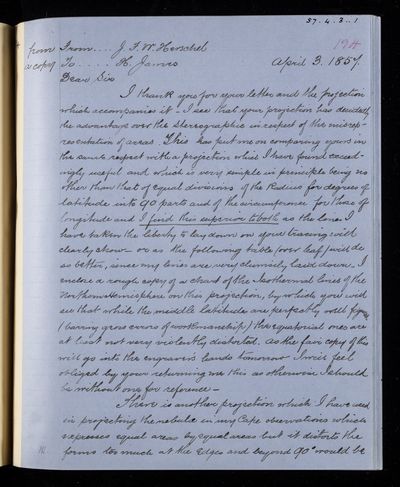 57.4.3.1
194
from From.... J. F. W. Herschel
a copy To..... H. James April 3. 1857.
Dear Sir
I thank you for your letter and the projection
which accompanies it. I see that your projection has decidedly
the advantage over the stereographic in respect of the misrep-
resentation of areas. This has put me on comparing yours in
the same respect with a projection which I have found exceed-
ingly useful and which is very simple in principle being no
other than that of equal divisions of the Radius for degrees of
latitude into 90 parts and of the circumference for those of
longitude and I find this superior to both as the lines I
have taken the liberty to lay down on your tracing will
clearly show – or as the following table (over leaf) will do
as better, since my lines are very clumsily laid down. I
enclose a rough copy of a chart of the Isothermal lines of the
Northern Hemisphere on this projection, by which you will
see that while the middle latitudes are perfectly well
(barring gross errors of workmanship) the equatorial ones are
at least not very violently distorted. As the fair copy of this
will go into the engravers hands tomorrow I will feel
obliged by your returning me this as otherwise I should
be without one for reference –
There is another projection which I have used
in projecting the nebulae in my Cape observations which
expresses equal areas by equal areas but it distorts the
forms too much at the edges and beyond 90° would be